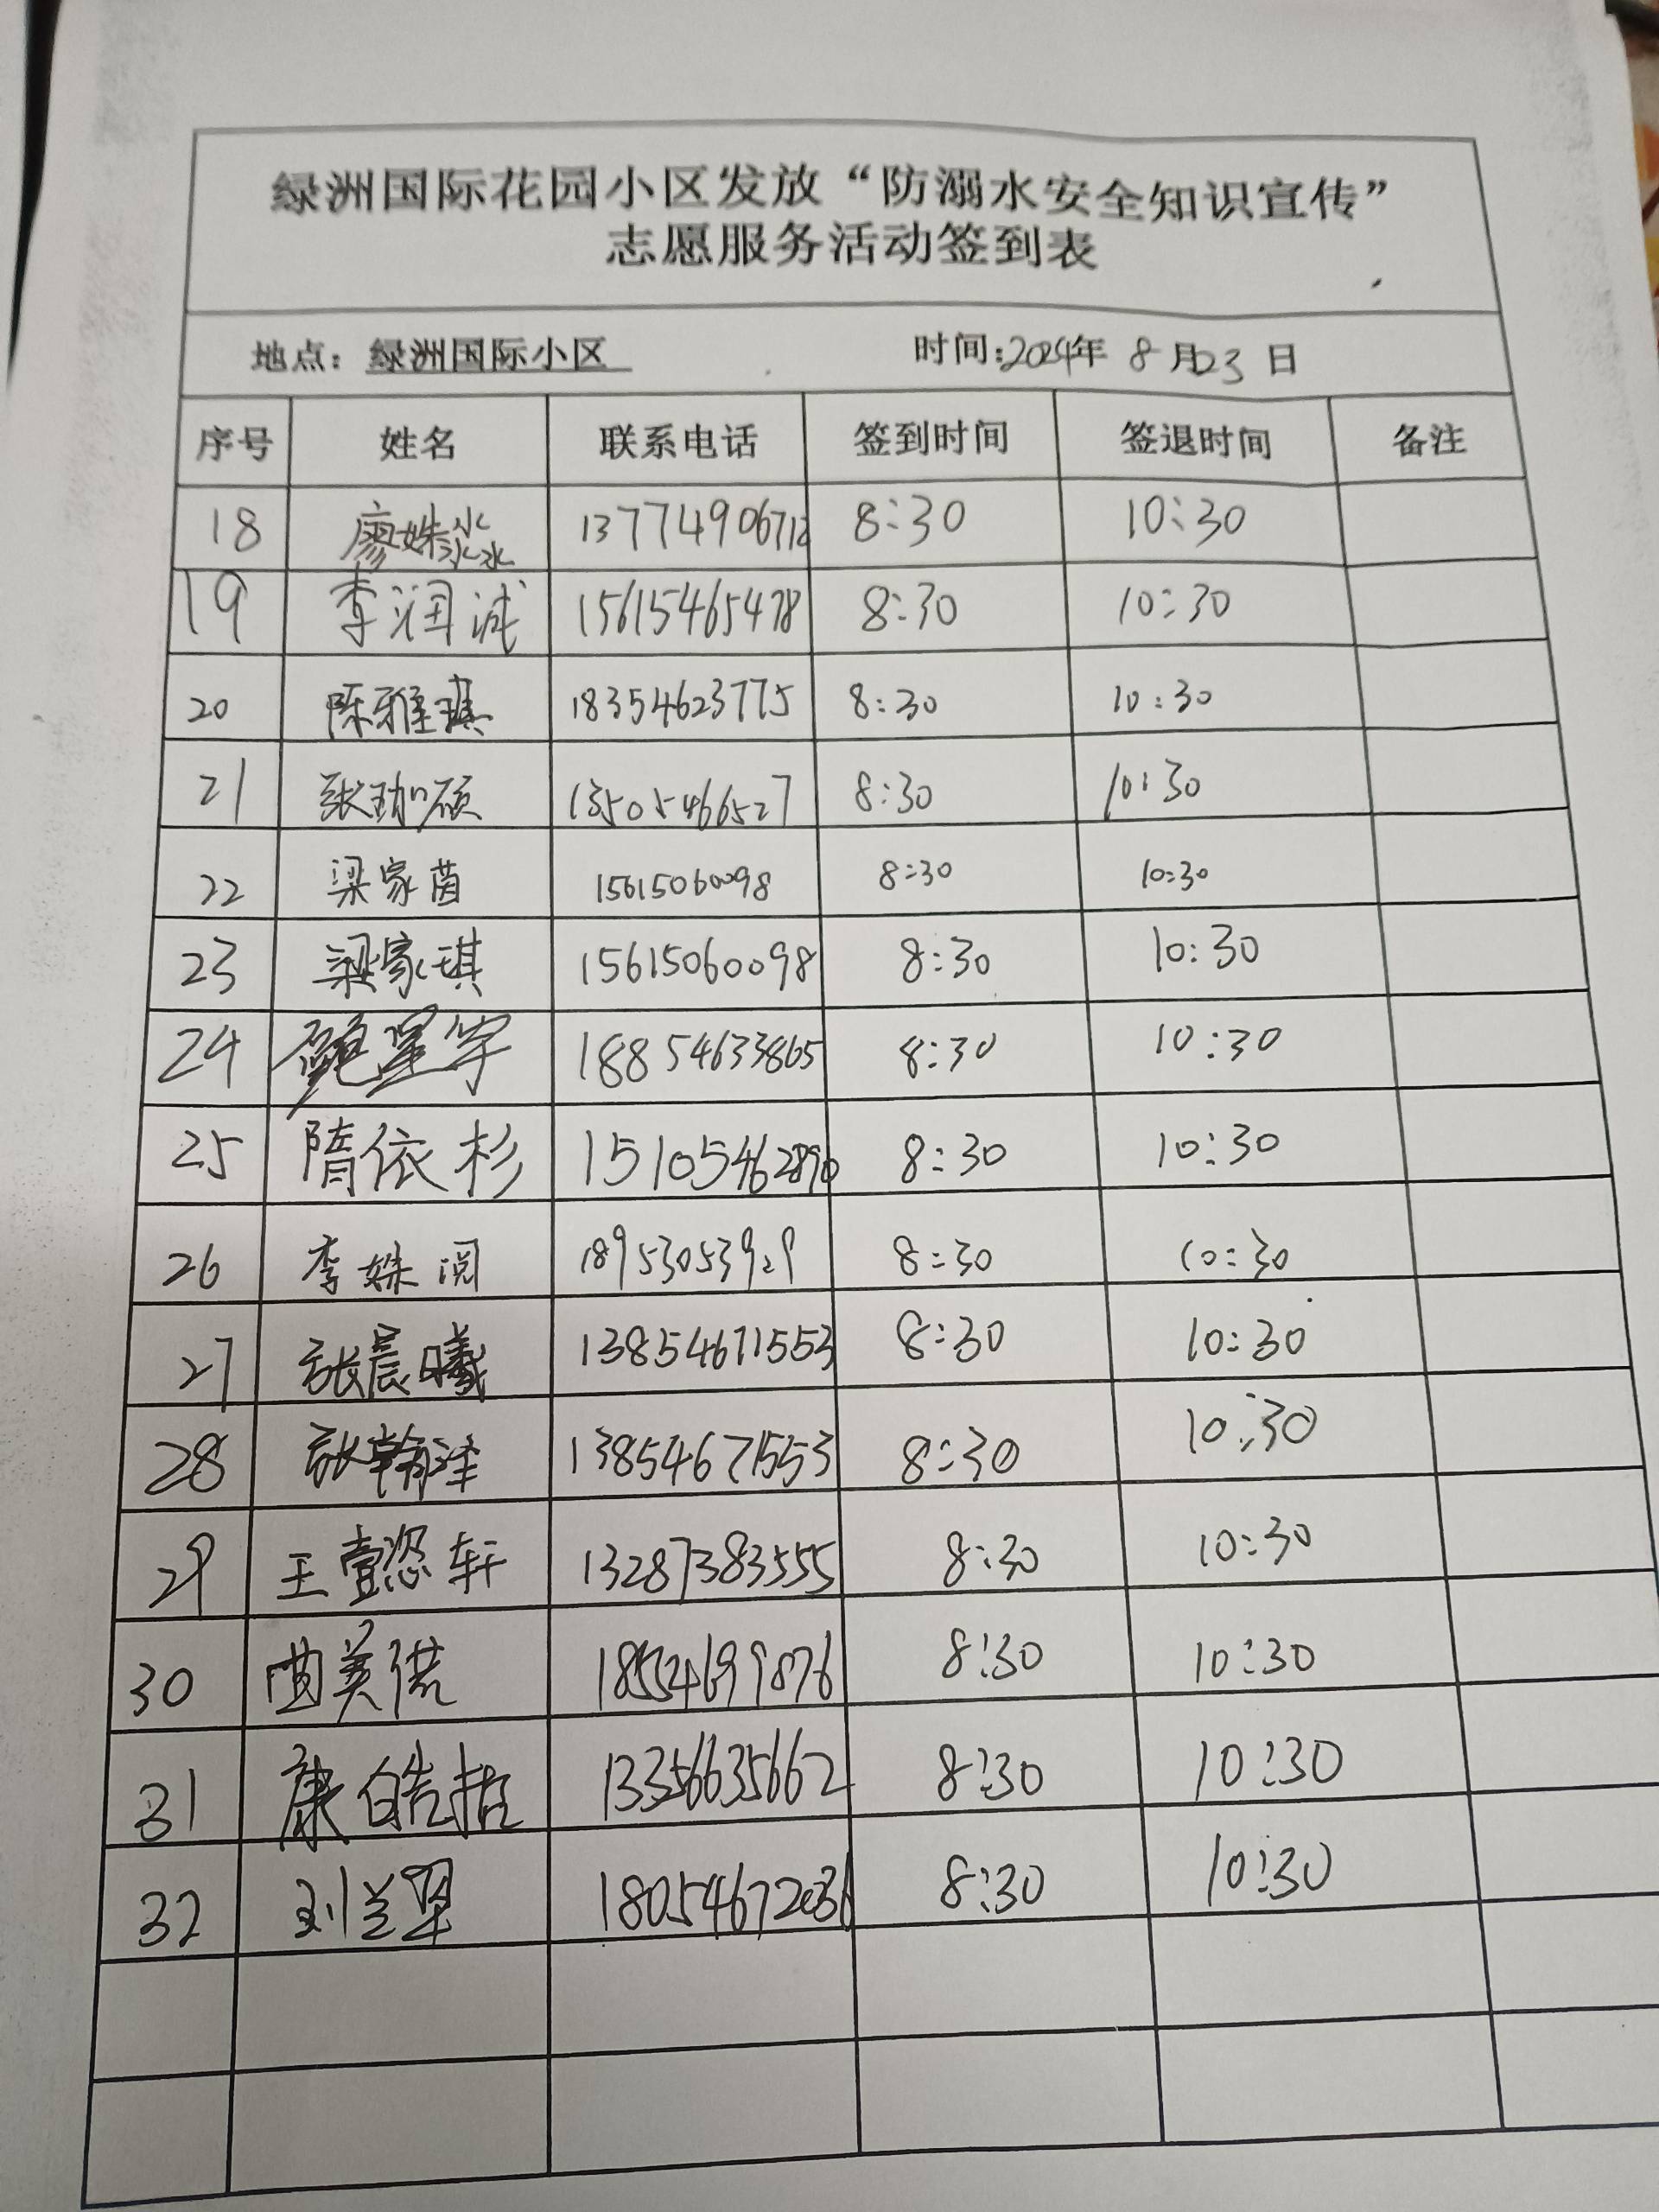 绿洲国际花园小区发放“防溺水安全知识宣传”
志愿服务活动签到表
地点：绿洲国际小区 时间：2024年 8 月23 日
序号 姓名 联系电话 签到时间 签退时间 备注
18 廖姝淼 13774906712 8:30 10:30
19 李润诚 15615465478 8:30 10:30
20 陈雅琪 18354623775 8:30 10:30
21 张珈硕 13505466527 8:30 10:30
22 梁家茵 15615060098 8:30 10:30
23 梁家琪 15615060098 8:30 10:30
24 星宇 18854633865 8:30 10:30
25 隋依杉 15105462890 8:30 10:30
26 李姝阅 18953053929 8:30 10:30
27 张晨曦 13854671553 8:30 10:30
28 张翰泽 13854671553 8:30 10:30
29 王壹恣轩 13287383555 8:30 10:30
30 曲美偌 18554699876 8:30 10:30
31 康皓 13356635662 8:30 10:30
32 刘兰 18054672036 8:30 10:30